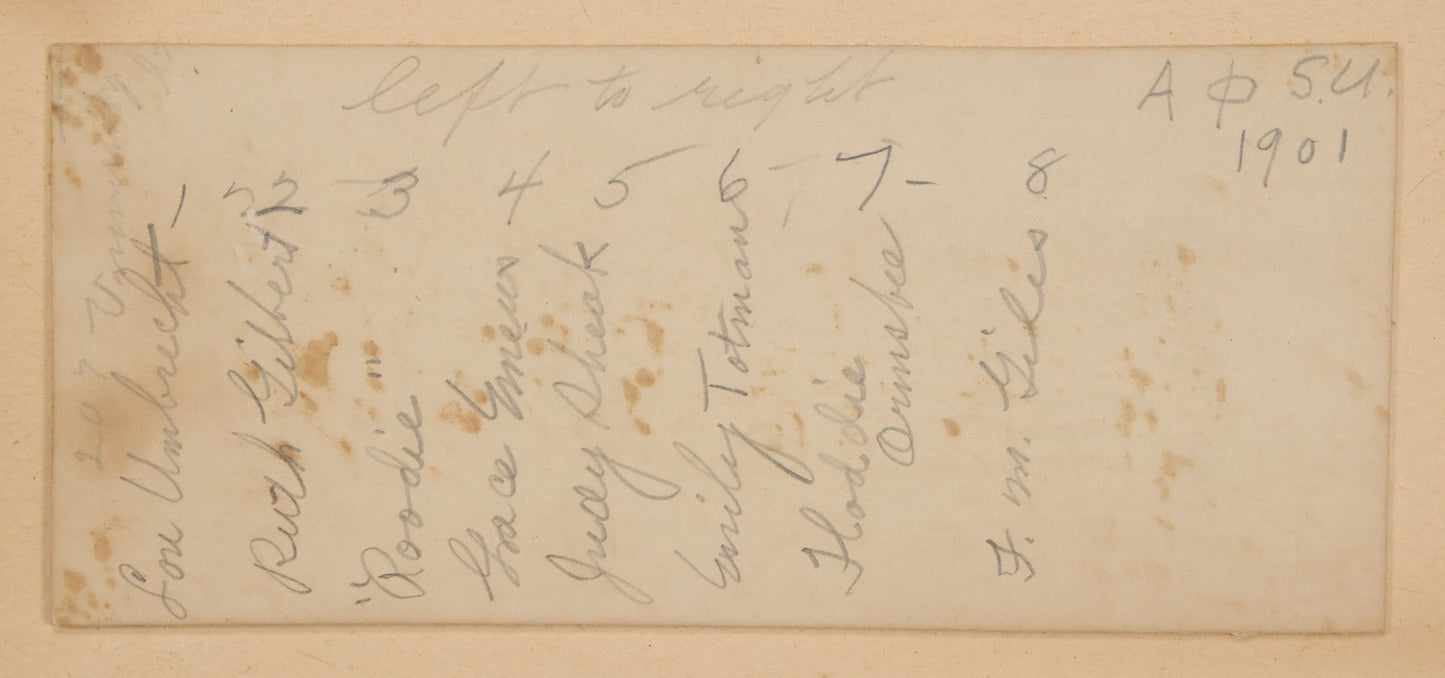 left to right
A Φ S.U.
1901
Lou Umbrecht -
Ruth Gilbert 2
"Roodie" 3
Grace Emens 4
Judy Sheak 5
Emily Totman 6
Floddie 7 -
Ormsbee
F. M. Giles 8